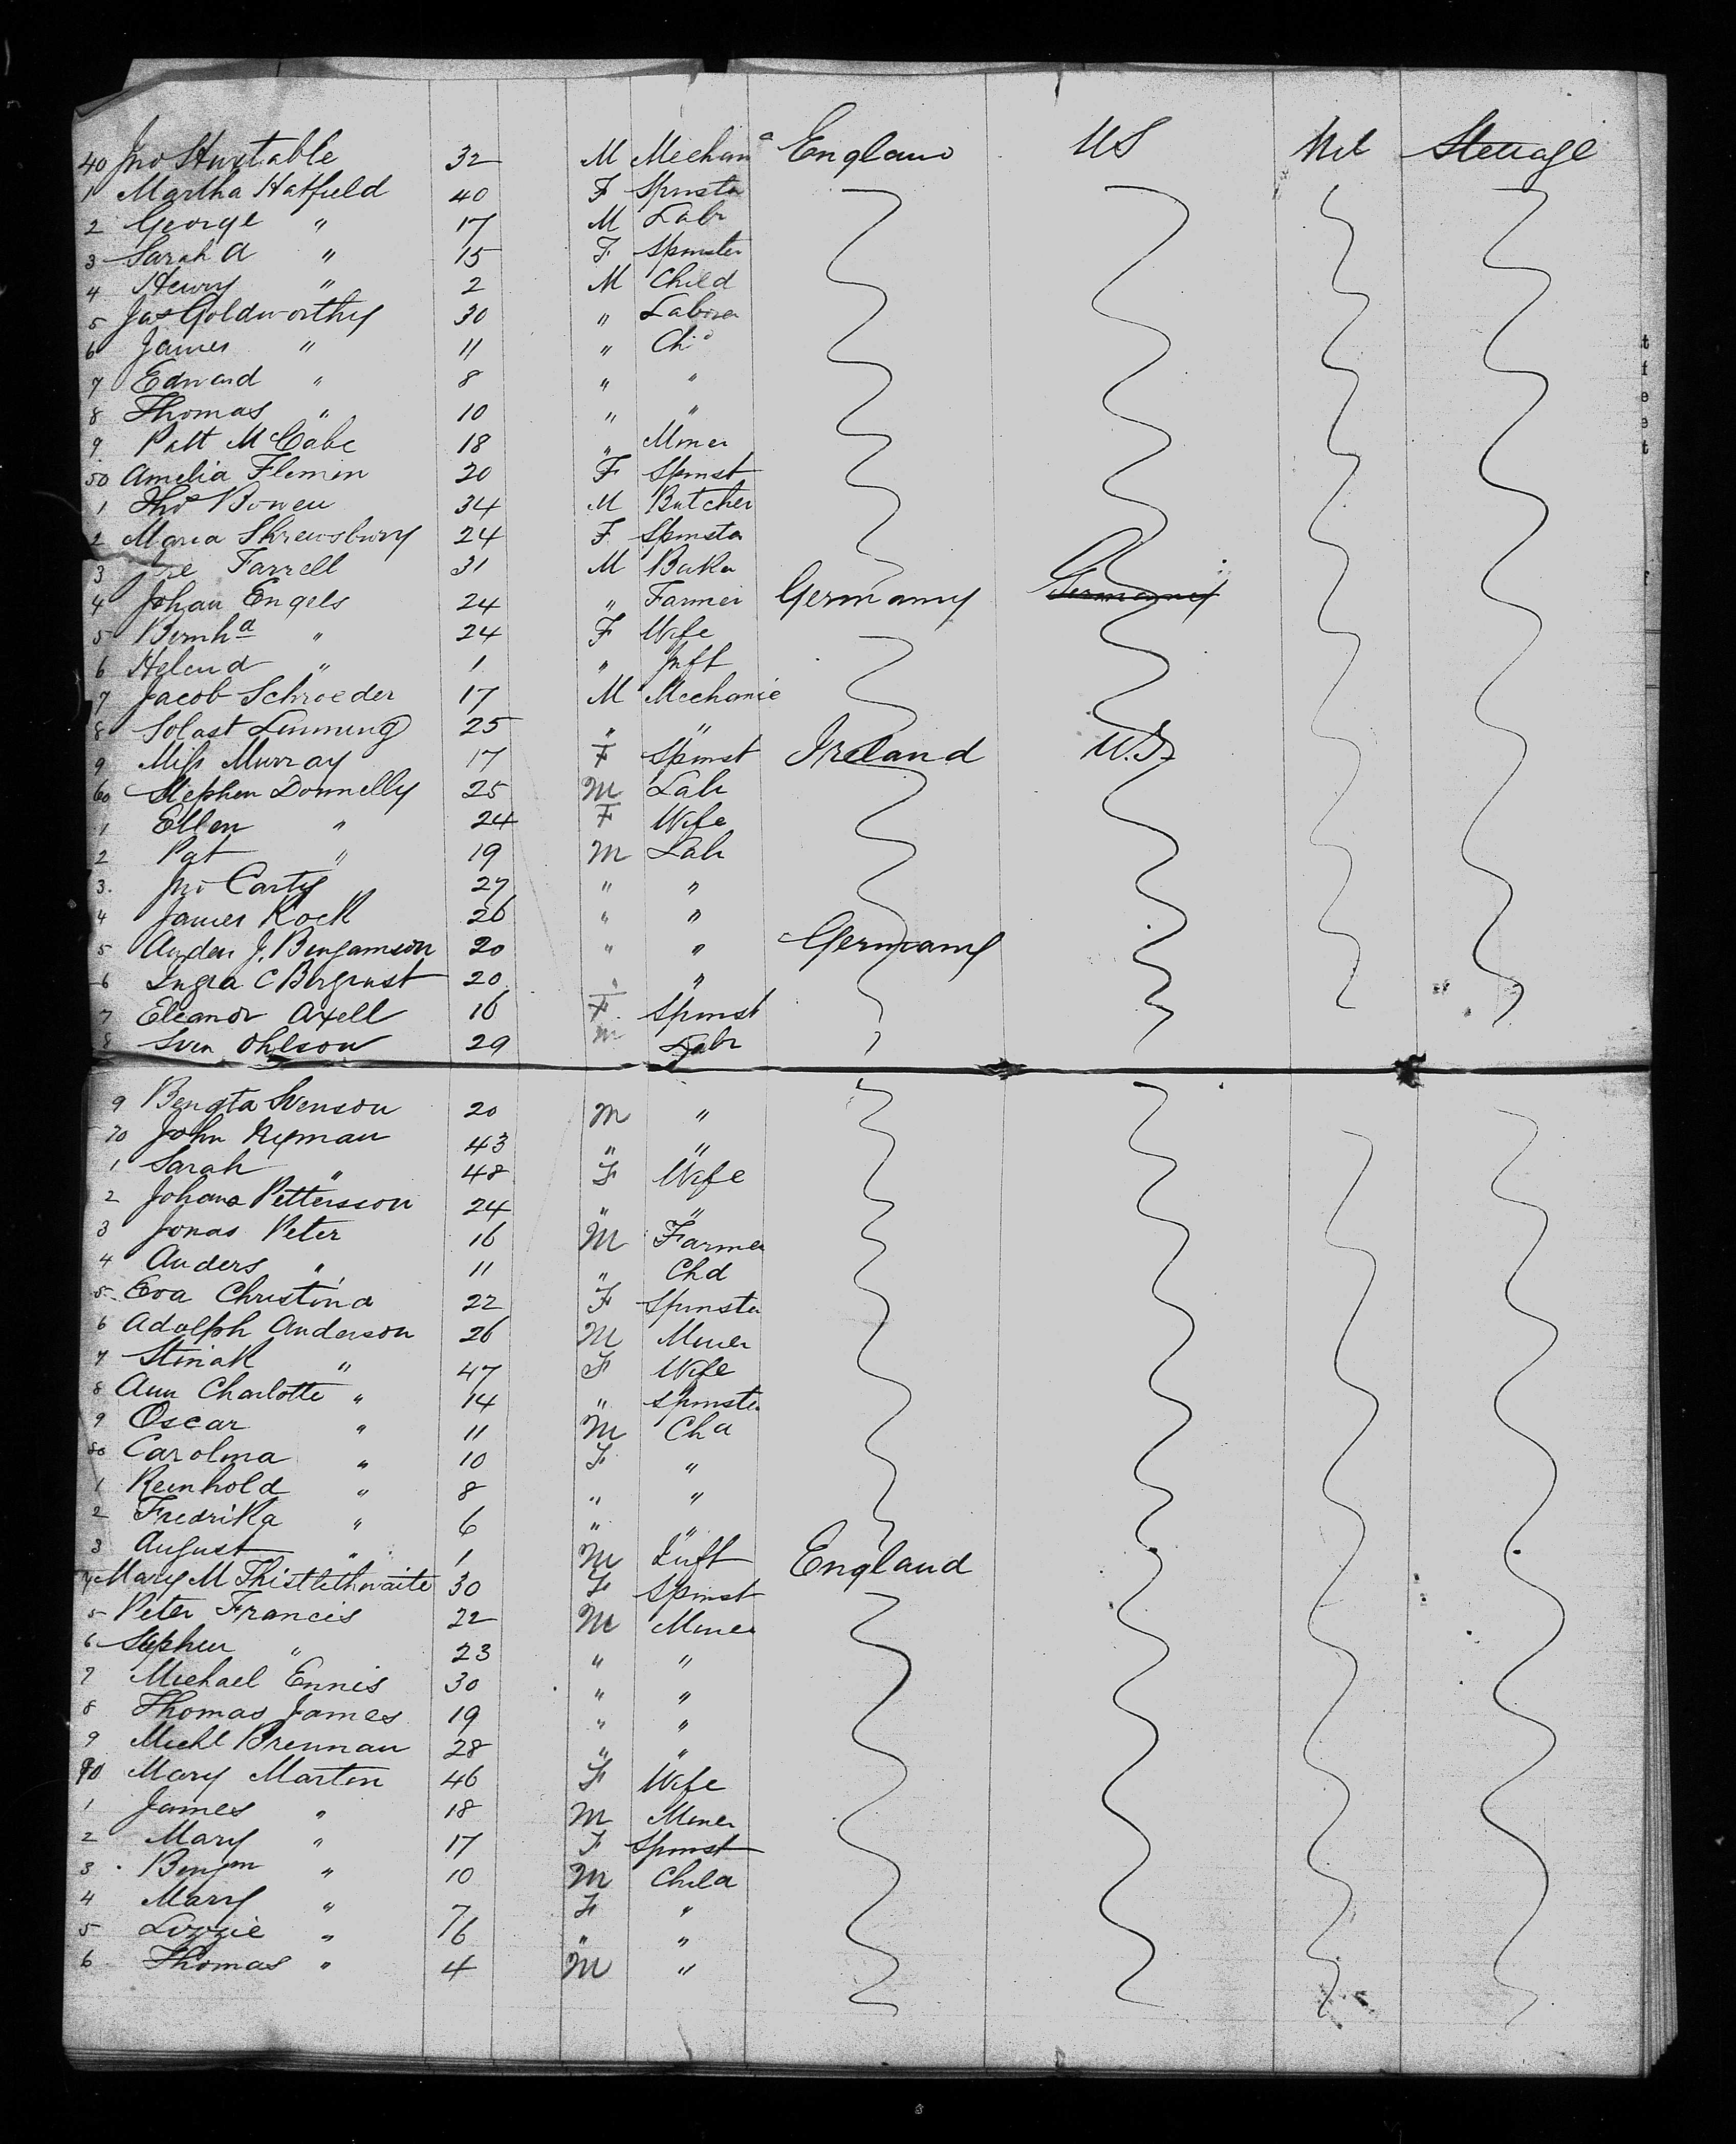 40 Jno Huxtable 32 M Mechanc England US Nil Steerage
1 Martha Hatfield 40 F Spinster
2 George " 17 M Labr
3 Sarah A " 15 F Spinster
4 Henry " 2 M Child
5 Jas Goldworthy 30 " Laborer
6 James " 11 " Chd
7 Edward " 8 " "
8 Thomas " 10 " "
9 Patt McCabe 18 " Miner
50 Amelia Flemen 20 F Spinst
1 Thos Bowen 34 M Butcher
2 Maria Shrewsbury 24 F Spinster
3 Farrell 31 M Baker
4 Johan Engels 24 " Farmer Germany Germany
5 Bernha " 24 F Wife
6 Helena " 1 " Inft
7 Jacob Schroeder 17 M Mechanic
8 Solast Linning 25 " "
9 Miss Murray 17 F Spinst Ireland U.S.
60 Stephen Donnelly 25 M Labr
1 Ellen " 24 F Wife
2 Pat " 19 M Labr
3. Jno Carty 27 " "
4 James Rock 26 " "
5 J. Bengamson 20 " " Germany
6 C 20 " "
7 Eleanor Axell 16 F. Spinst
8 Sven Ohlson 29 M Labr
9 Bengta Svenson 20 M "
70 John Nyman 43 " "
1 Sarah " 48 F Wife
2 Johana Pettersson 24 " "
3 Jonas Peter 16 M Farmer
4 Anders " 11 " Chd
5 Eva Christina 22 F Spinster
6 Adolph Anderson 26 M Miner
7 Stinak " 47 F Wife
8 Ann Charlotte " 14 " Spinster
9 Oscar " 11 M Chd
80 Carolina " 10 F "
1 Reinhold " 8 " "
2 Fredrika " 6 " "
3 August " 1 M Inft England
4 Mary M Thistlethwaite 30 F Spinst
5 Peter Francis 22 M Miner
6 Stephen " 23 " "
7 Michael Ennis 30 " "
8 Thomas James 19 " "
9 Michl Brennan 28 " "
90 Mary Martin 46 F Wife
1 James " 18 M Miner
2 Mary " 17 F Spinst
3 Benjm " 10 M Child
4 Mary " 7 F "
5 Lizzie " 6 " "
6 Thomas " 4 M "